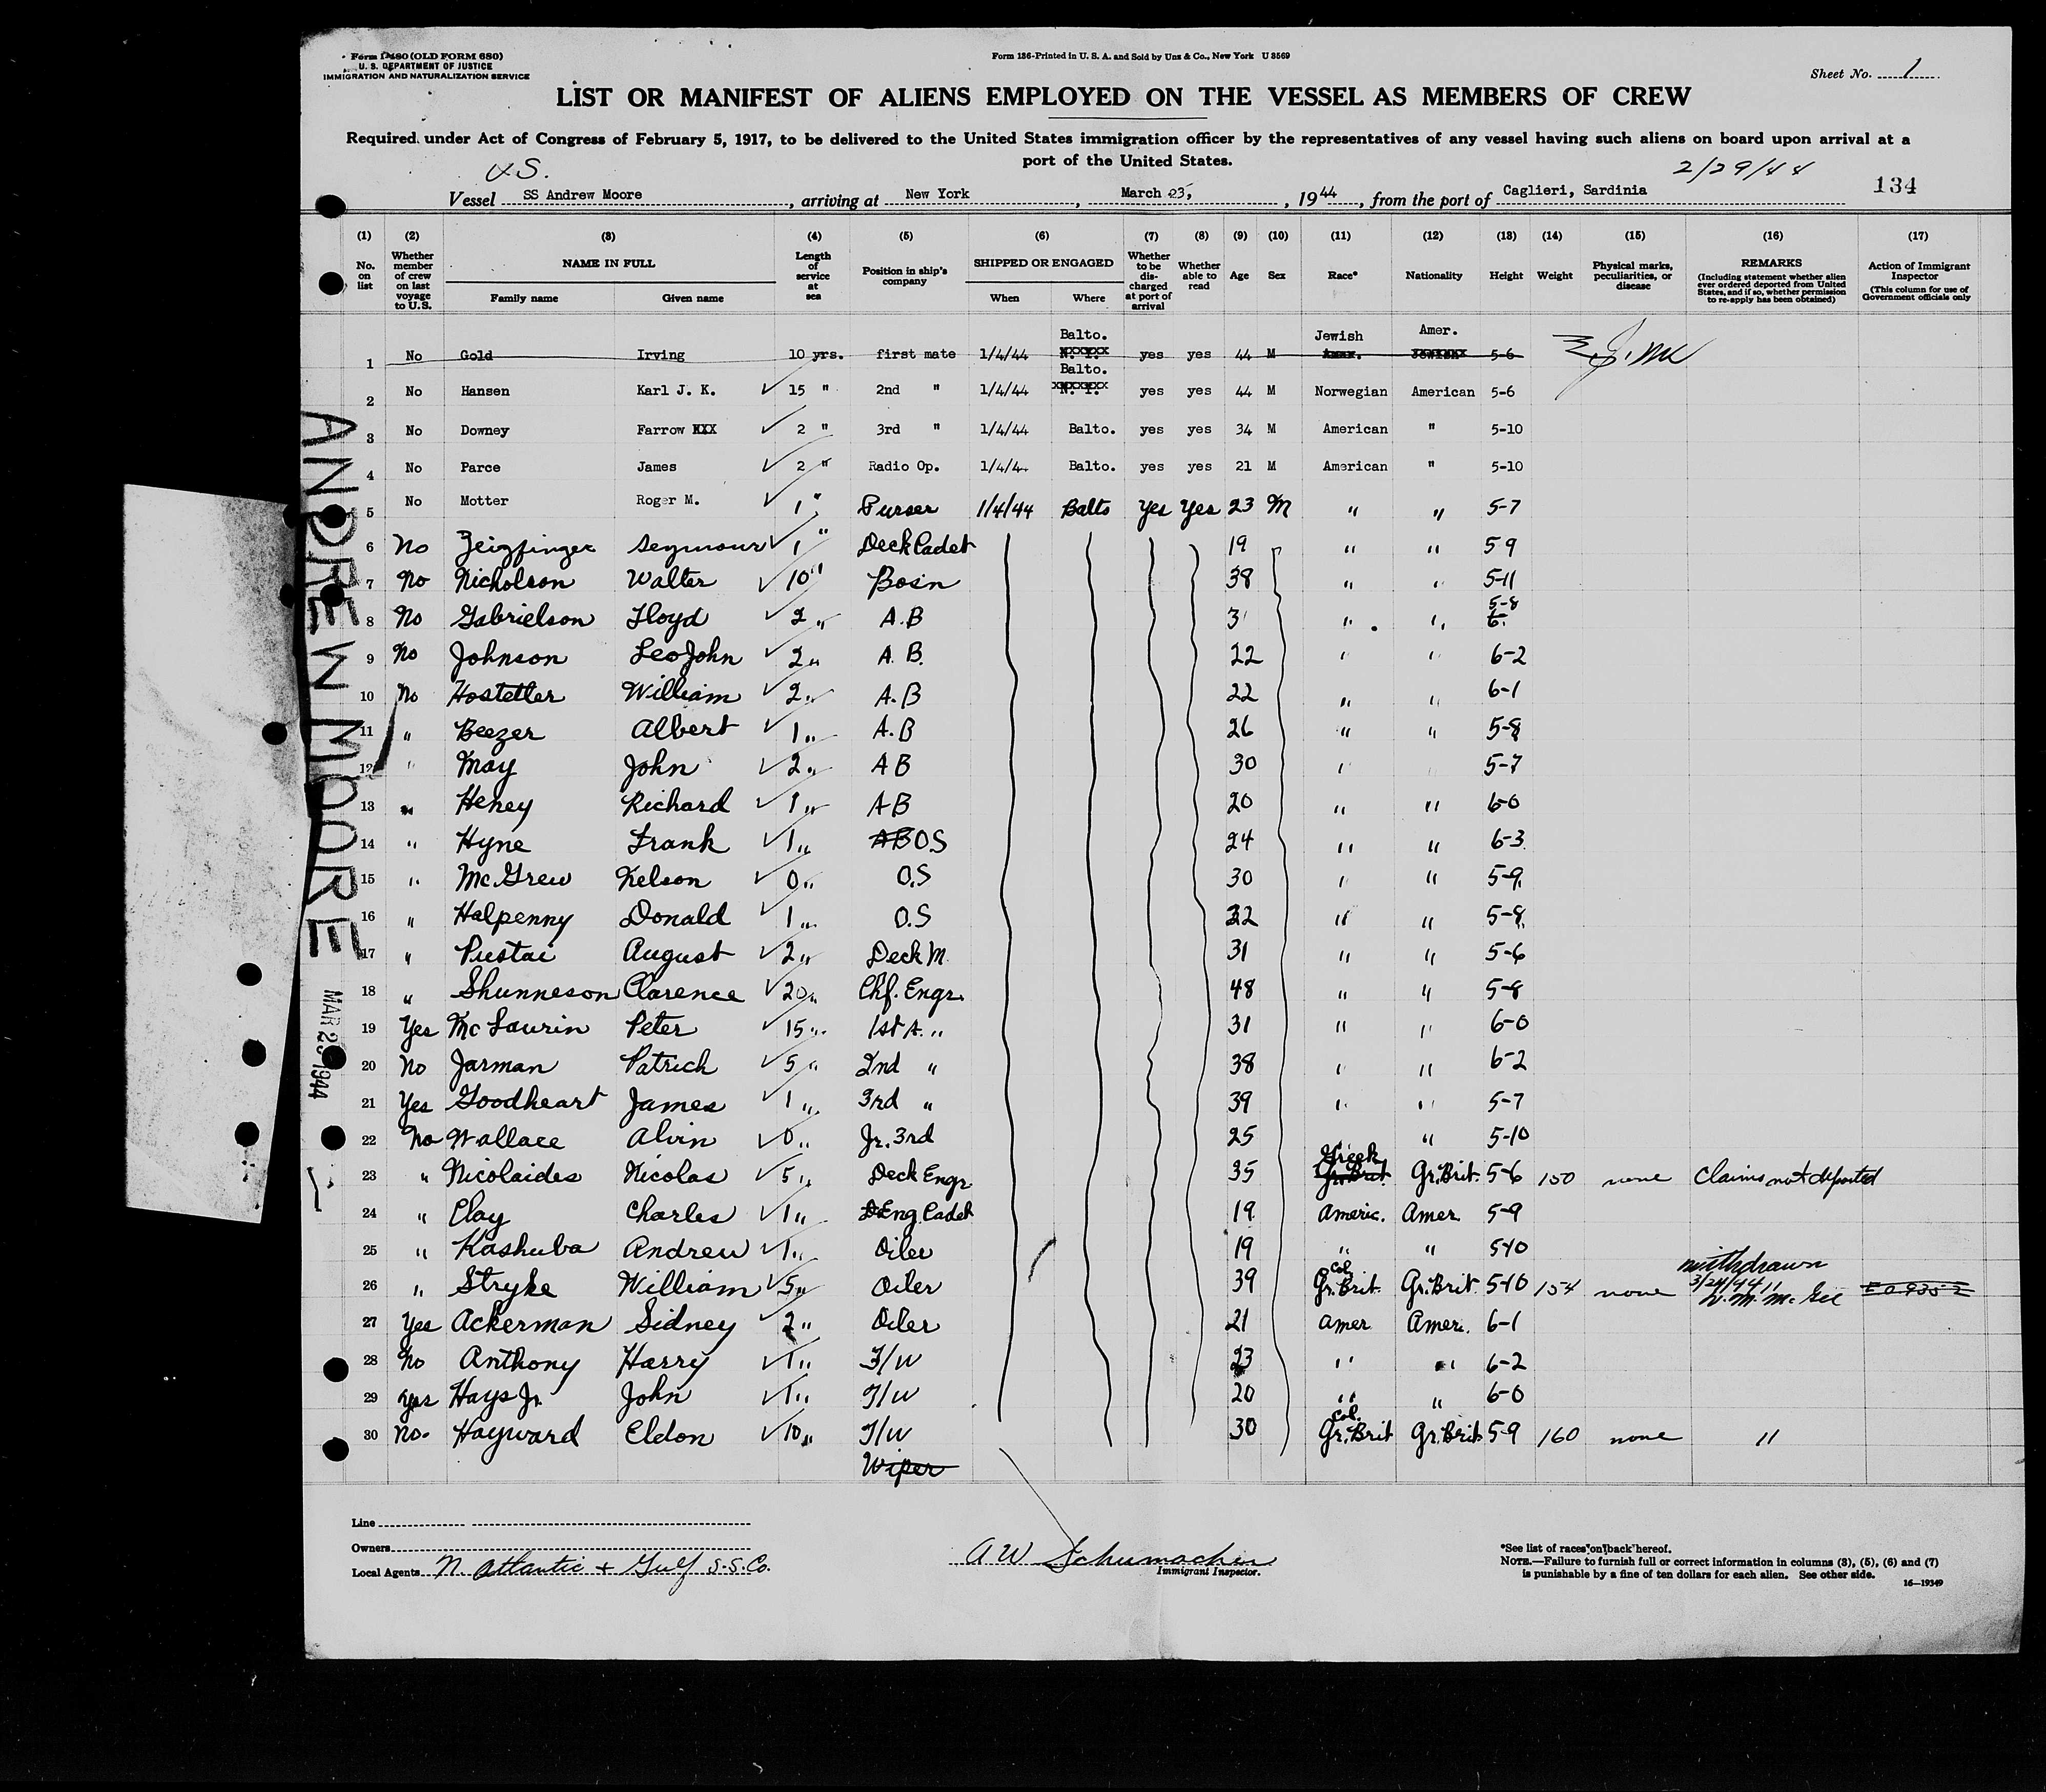 Form I-480 (OLD FORM 680)
U. S. DEPARTMENT OF JUSTICE
IMMIGRATION AND NATURALIZATION SERVICE
Form 136-Printed in U. S. A. and Sold by Unz & Co., New York U 3569
Sheet No. 1
LIST OR MANIFEST OF ALIENS EMPLOYED ON THE VESSEL AS MEMBERS OF CREW
Required under Act of Congress of February 5, 1917, to be delivered to the United States immigration officer by the representatives of any vessel having such aliens on board upon arrival at a
port of the United States.
U.S. 2/29/44
Vessel SS Andrew Moore, arriving at New York, March 23, 1944, from the port of Caglieri, Sardinia 134
(1) (2) (3) (4) (5) (6) (7) (8) (9) (10) (11) (12) (13) (14) (15) (16) (17)
No. on list
Whether member of crew on last voyage to U.S.
NAME IN FULL
Family name
Given name
Length of service at sea
Position in ship's company
SHIPPED OR ENGAGED
When
Where
Whether to be discharged at port of arrival
Whether able to read
Age
Sex
Race*
Nationality
Height
Weight
Physical marks, peculiarities, or disease
REMARKS
(Including statement whether alien ever ordered deported from United States, and if so, whether permission to re-apply has been obtained)
Action of Immigrant Inspector
(This column for use of Government officials only
1 No Gold Irving 10 yrs. first mate 1/4/44 Balto. yes yes 44 M Jewish Amer. 5-6
2 No Hansen Karl J. K. 15 " 2nd " 1/4/44 Balto. yes yes 44 M Norwegian American 5-6
3 No Downey Farrow XXX 2 " 3rd " 1/4/44 Balto. yes yes 34 M American " 5-10
4 No Parce James 2 " Radio Op. 1/4/4 Balto. yes yes 21 M American " 5-10
5 No Motter Roger M. 1 " Purser 1/4/44 Balto Yes Yes 23 M " " 5-7
6 No Zeizfinger Seymour 1 " Deck Cadet 19 " " 5 9
7 No Nicholson Walter 10 " Bos'n 38 " " 5-11
8 No Gabrielson Floyd 2 " A.B 31 " " 5-8
9 No Johnson Leo John 2 " A.B. 22 " " 6-2
10 No Hostetler William 2 " A.B 22 " " 6-1
11 " Beezer Albert 1 " A.B 26 " " 5-8
12 " May John 2 " AB 30 " " 5-7
13 " Heney Richard 1 " AB 20 " " 6-0
14 " Hyne Frank 1 " AB O.S 24 " " 6-3
15 " McGrew Kelson 0 " O.S 30 " " 5-9
16 " Halpenny Donald 1 " O.S 22 " " 5-8
17 " Pustai August 2 " Deck M. 31 " " 5-6
18 " Shunneson Clarence 20 " Chf. Engr. 48 " " 5-8
19 Yes McLaurin Peter 15 " 1st A. " 31 " " 6-0
20 No Jarman Patrick 5 " 2nd " 38 " " 6-2
21 Yes Goodheart James 1 " 3rd " 39 " " 5-7
22 No Wallace Alvin 0 " Jr. 3rd 25 " 5-10
23 " Nicolaides Nicolas 5 " Deck Engr 35 Greek Gr. Brit. Gr. Brit. 5-6 150 none Claims not deported
24 " Clay Charles 1 " Eng. Cadet 19 Americ. Amer 5-9
25 " Kashuba Andrew 1 " Oiler 19 " " 5-10
26 " Stryke William 5 " Oiler 39 Col. Gr. Brit. Gr. Brit. 5-10 154 none withdrawn 3/24/44 W. M. McGee
27 Yes Ackerman Sidney 2 " Oiler 21 Amer Amer. 6-1
28 No Anthony Harry 1 " F/W 23 " " 6-2
29 Yes Hays Jr. John 1 " F/W 20 " " 6-0
30 No. Hayward Eldon 10 " F/W 30 Col. Gr. Brit Gr. Brit 5-9 160 none "
Wiper
ANDREW MOORE
MAR 23 1944
Line
Owners
Local Agents N. Atlantic + Gulf S.S. Co.
A W Schumacher
Immigrant Inspector.
*See list of races on back hereof.
NOTE.—Failure to furnish full or correct information in columns (3), (5), (6) and (7)
is punishable by a fine of ten dollars for each alien. See other side.
16—19349